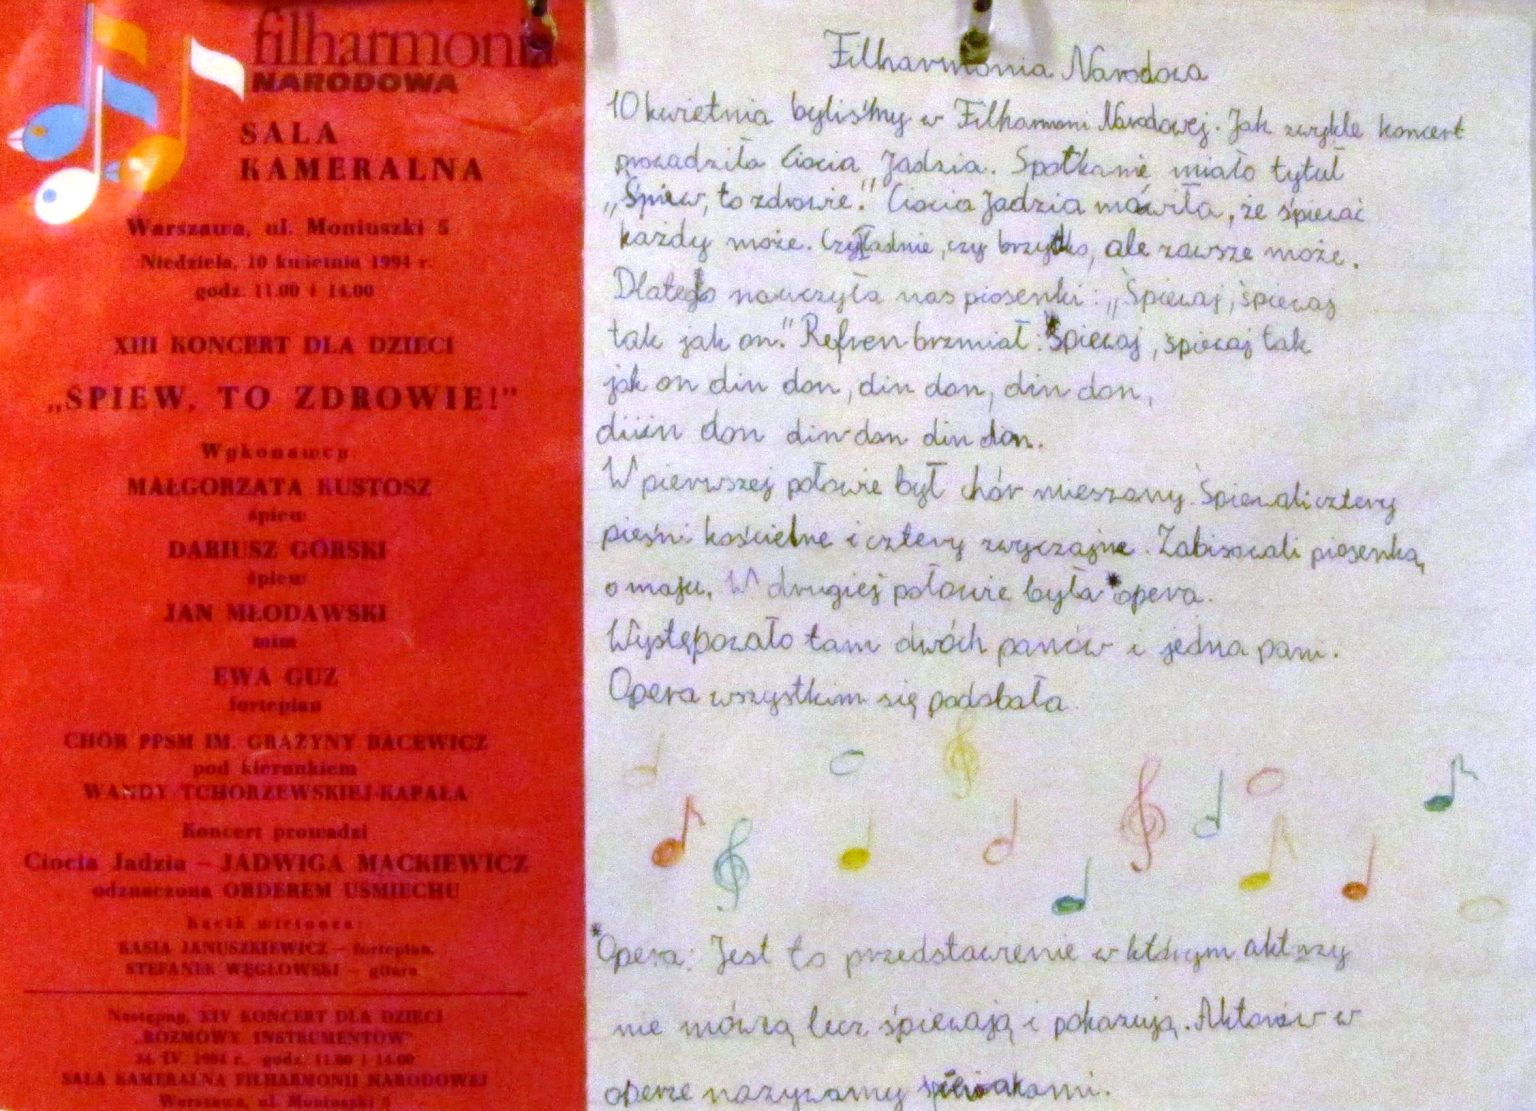 filharmonia
NARODOWA
SALA
KAMERALNA
Warszawa, ul. Moniuszki 5
Niedziela, 10 kwietnia 1994 r.
godz. 11.00 i 14.00
XIII KONCERT DLA DZIECI
„ŚPIEW, TO ZDROWIE!"
Wykonawcy:
MAŁGORZATA KUSTOSZ
śpiew
DARIUSZ GÓRSKI
śpiew
JAN MŁODAWSKI
mim
EWA GUZ
fortepian
CHÓR PPSM IM. GRAŻYNY BACEWICZ
pod kierunkiem
WANDY TCHORZEWSKIEJ-KAPAŁA
Koncert prowadzi
Ciocia Jadzia – JADWIGA MACKIEWICZ
odznaczona ORDEREM UŚMIECHU
Kącik wirtuoza:
KASIA JANUSZKIEWICZ – fortepian,
STEFANEK WĘGŁOWSKI – gitara
Następny, XIV KONCERT DLA DZIECI
„ROZMOWY INSTRUMENTÓW"
24. IV. 1994 r. godz. 11.00 i 14.00
SALA KAMERALNA FILHARMONII NARODOWEJ
Warszawa, ul. Moniuszki 5
Filharmonia Narodowa
10 kwietnia byliśmy w Filharmoni Narodowej. Jak zwykle koncert
prowadziła Ciocia Jadzia. Spotkanie miało tytuł
„Śpiew, to zdrowie." Ciocia Jadzia mówiła, że śpiewać
każdy może. Czy ładnie, czy brzydko, ale zawsze może.
Dlatego nauczyła nas piosenki: „Śpiewaj, śpiewaj
tak jak on." Refren brzmiał: Śpiewaj, śpiewaj tak
jak on din don, din don, din don,
diiin don din don din don.
W pierwszej połowie był chór mieszany. Śpiewali cztery
pieśni kościelne i cztery zwyczajne. Zabisowali piosenką
o maju. W drugiej połowie była *opera.
Występowało tam dwóch panów i jedna pani.
Opera wszystkim się podobała
*Opera: Jest to przedstawienie w którym aktorzy
nie mówią lecz śpiewają i pokazują. Aktorów w
operze nazywamy śpiewakami.